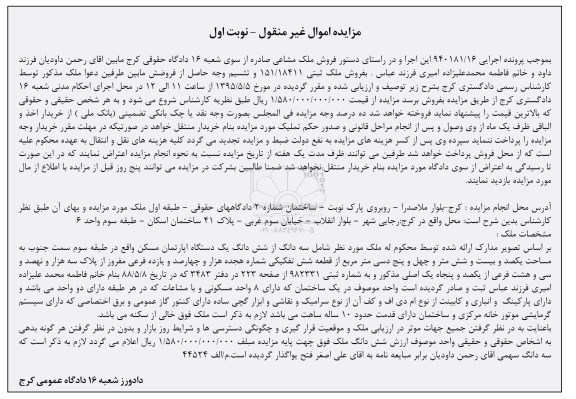 مزایده اموال غیر منقول - نوبت اول
بموجب پرونده اجرایی ۹۴۰۱۸۱/۱۶ این اجرا و در راستای دستور فروش ملک مشاعی صادره از سوی شعبه ۱۶ دادگاه حقوقی کرج مابین آقای رحمن داودیان فرزند
داود و خانم فاطمه محمدعلیزاده امیری فرزند عباس . بفروش ملک ثبتی ۱۵۱/۱۸۴۱۱ و تقسیم وجه حاصل از فروشش مابین طرفین دعوا ملک مذکور توسط
کارشناس رسمی دادگستری کرج بشرح زیر توصیف و ارزیابی شده و مقرر گردیده در مورخ ۱۳۹۵/۵/۵ از ساعت ۱۱ الی ۱۲ در محل اجرای احکام مدنی شعبه ۱۶
دادگستری کرج از طریق مزایده بفروش برسد مزایده از قیمت ۱/۵۸۰/۰۰۰/۰۰۰/۰۰۰ ریال طبق نظریه کارشناس شروع می شود و به هر شخص حقیقی و حقوقی
که بالاترین قیمت را پیشنهاد نماید فروخته خواهد شد ده درصد وجه مزایده فی المجلس بصورت وجه نقد یا چک بانکی تضمینی (بانک ملی ) از خریدار اخذ و
الباقی ظرف یک ماه از وی وصول و پس از انجام مراحل قانونی و صدور حکم تملیک مورد مزایده بنام خریدار منتقل خواهد در صورتیکه در مهلت مقرر خریدار وجه
مزایده را پرداخت ننماید سپرده وی پس از کسر هزینه های مزایده به نفع دولت ضبط و مزایده تجدید می گردد کلیه هزینه های نقل و انتقال به عهده محکوم علیه
است که از محل فروش پرداخت خواهد شد طرفین می توانند ظرف مدت یک هفته از تاریخ مزایده نسبت به نحوه انجام مزایده اعتراض نمایند که در این صورت
تا رسیدگی به اعتراض از سوی دادگاه مورد مزایده بنام خریدار منتقل نخواهد شد ضمنا طالبین بشرکت در مزایده می توانند پنج روز قبل از مزایده با اطلاع از مال
مورد مزایده بازدید نمایند.
آدرس محل انجام مزایده : کرج-بلوار ملاصدرا - روبروی پارک نوبت - ساختمان شماره ۲ دادگاههای حقوقی - طبقه اول ملک مورد مزایده و بهای آن طبق نظر
کارشناس بدین شرح است: محل واقع در کرج:رجایی شهر - بلوار انقلاب - خیابان سوم غربی - پلاک ۴۱ ساختمان اسکان - طبقه سوم واحد ۶
مشخصات ملک :
بر اساس تصویر مدارک ارائه شده توسط محکوم له ملک مورد نظر شامل سه دانگ از شش دانگ یک دستگاه آپارتمان مسکن واقع در طبقه سوم سمت جنوب به
مساحت یکصد و بیست و شش متر و چهل و پنج دسی متر مربع از قطعه شش تفکیکی شماره هجده هزار و چهارصد و یازده فرعی مفروز از پلاک سه هزار و نهصد و
سی و هشت فرعی از یکصد و پنجاه یک اصلی مذکور و به شماره ثبتی ۹۸۲۳۳۱ از صفحه ۲۲۳ در دفتر ۳۴۸۳ که در تاریخ ۸۸/۵/۸ بنام خانم فاطمه محمد علیزاده
امیری فرزند عباس ثبت و صادر گردیده است واحد موصوف در یک ساختمان که دارای ۸ واحد مسکونی و با مشاعات که در هر طبقه دارای دو واحد می باشد و
دارای پارکینگ و انباری و کابینت از نوع ام دی اف و کف آن از نوع سرامیک و نقاشی و ابزار گچی ساده دارای کنتور گاز عمومی و برق اختصاصی که دارای سیستم
گرمایشی موتور خانه مرکزی و ساختمان دارای قدمت حدود ۱۰ ساله ساهت می باشد لازم به ذکر است ملک فوق خالی از سکنه می باشد.
باعنایت به در نظر گرفتن جمیع جهات موثر در ارزیابی ملک و موقعیت قرار گیری و چگونگی دسترسی ها و شرایط روز بازار و بدون در نظر گرفتن هر گونه بدهی
به اشخاص حقوقی و حقیقی واحد موصوف ارزش شش دانگ ملک فوق جهت پایه مزایده مبلغ ۱/۵۸۰/۰۰۰/۰۰۰/۰۰۰ ریال اعلام می گردد لازم به ذکر است که
سه دانگ سهمی آقای رحمن داودیان برابر مبایعه نامه به آقای علی اصغر فتح یواگذار گردیده است.م/الف ۴۴۵۲۴
دادورز شعبه ۱۶ دادگاه عمومی کرج